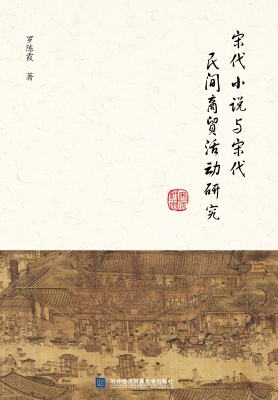 宋代小说与宋代
民间商贸活动研究
罗陈霞 著
对外经济贸易大学出版社